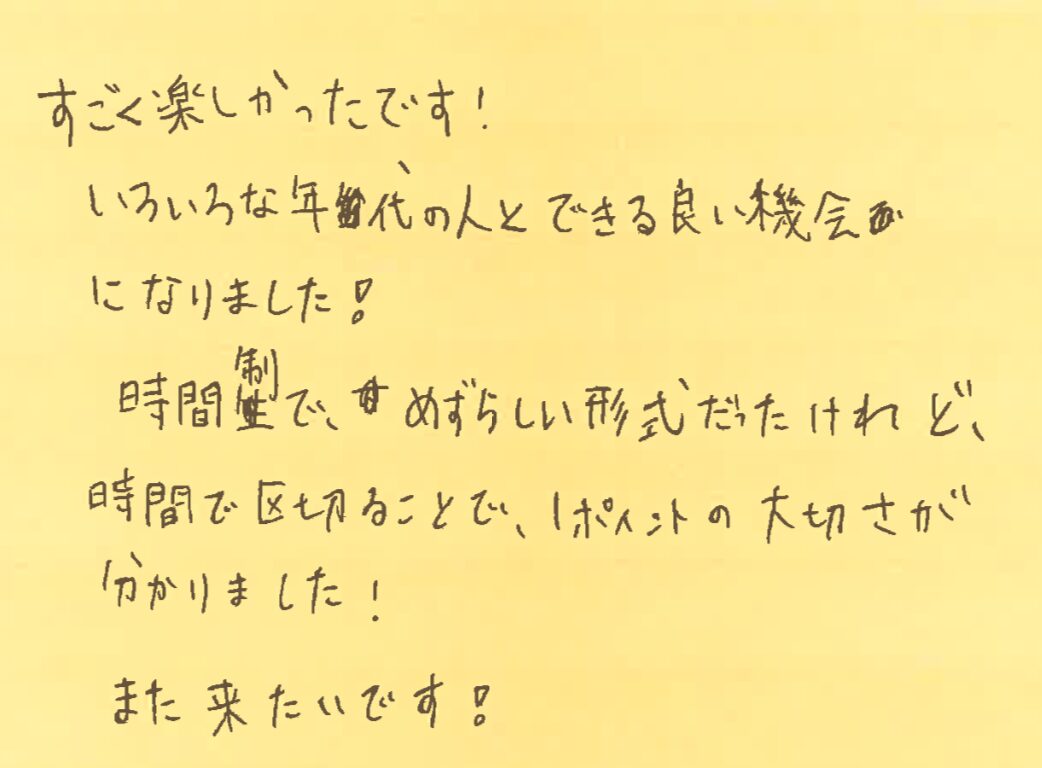 すごく楽しかったです！
いろいろな年代の人とできる良い機会
になりました！
時間制で、めずらしい形式だったけれど、
時間で区切ることで、1ポイントの大切さが
分かりました！
また来たいです！